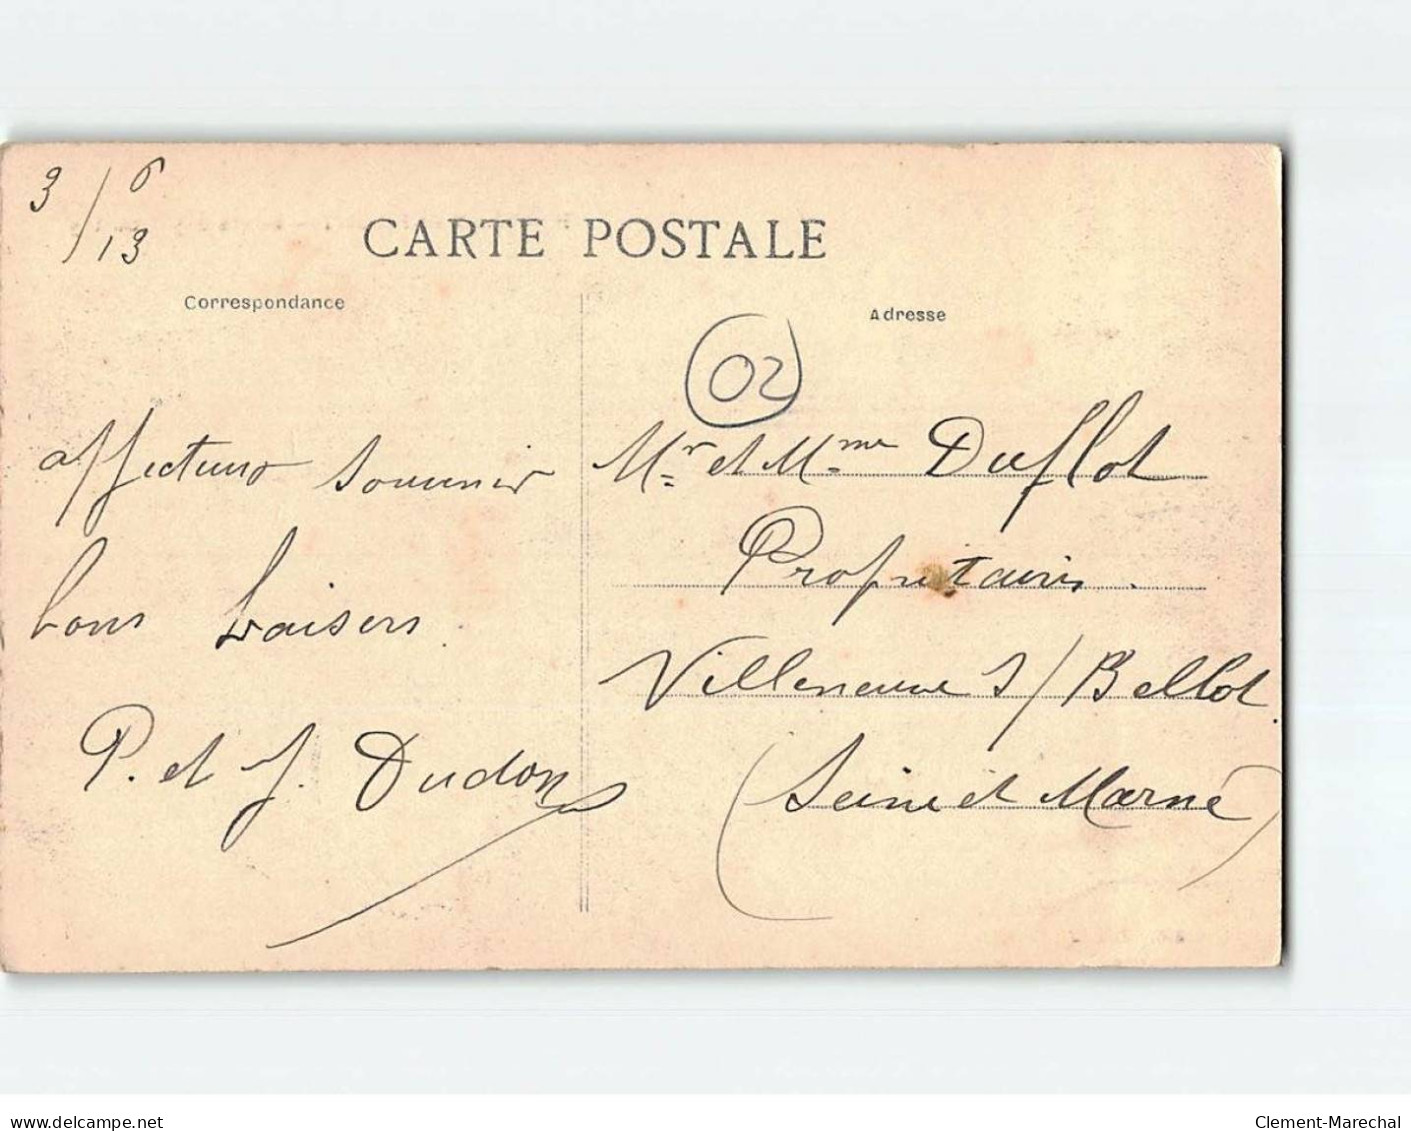 3/6
13
CARTE POSTALE
Correspondance
Adresse
02
affectueux souvenir
bons baisers
P. et J. Dudon
Mr et Mme Duflot
Propriétaires.
Villeneuve s/ Bellot.
(Seine et Marne)
www.delcampe.net
Clement-Marechal